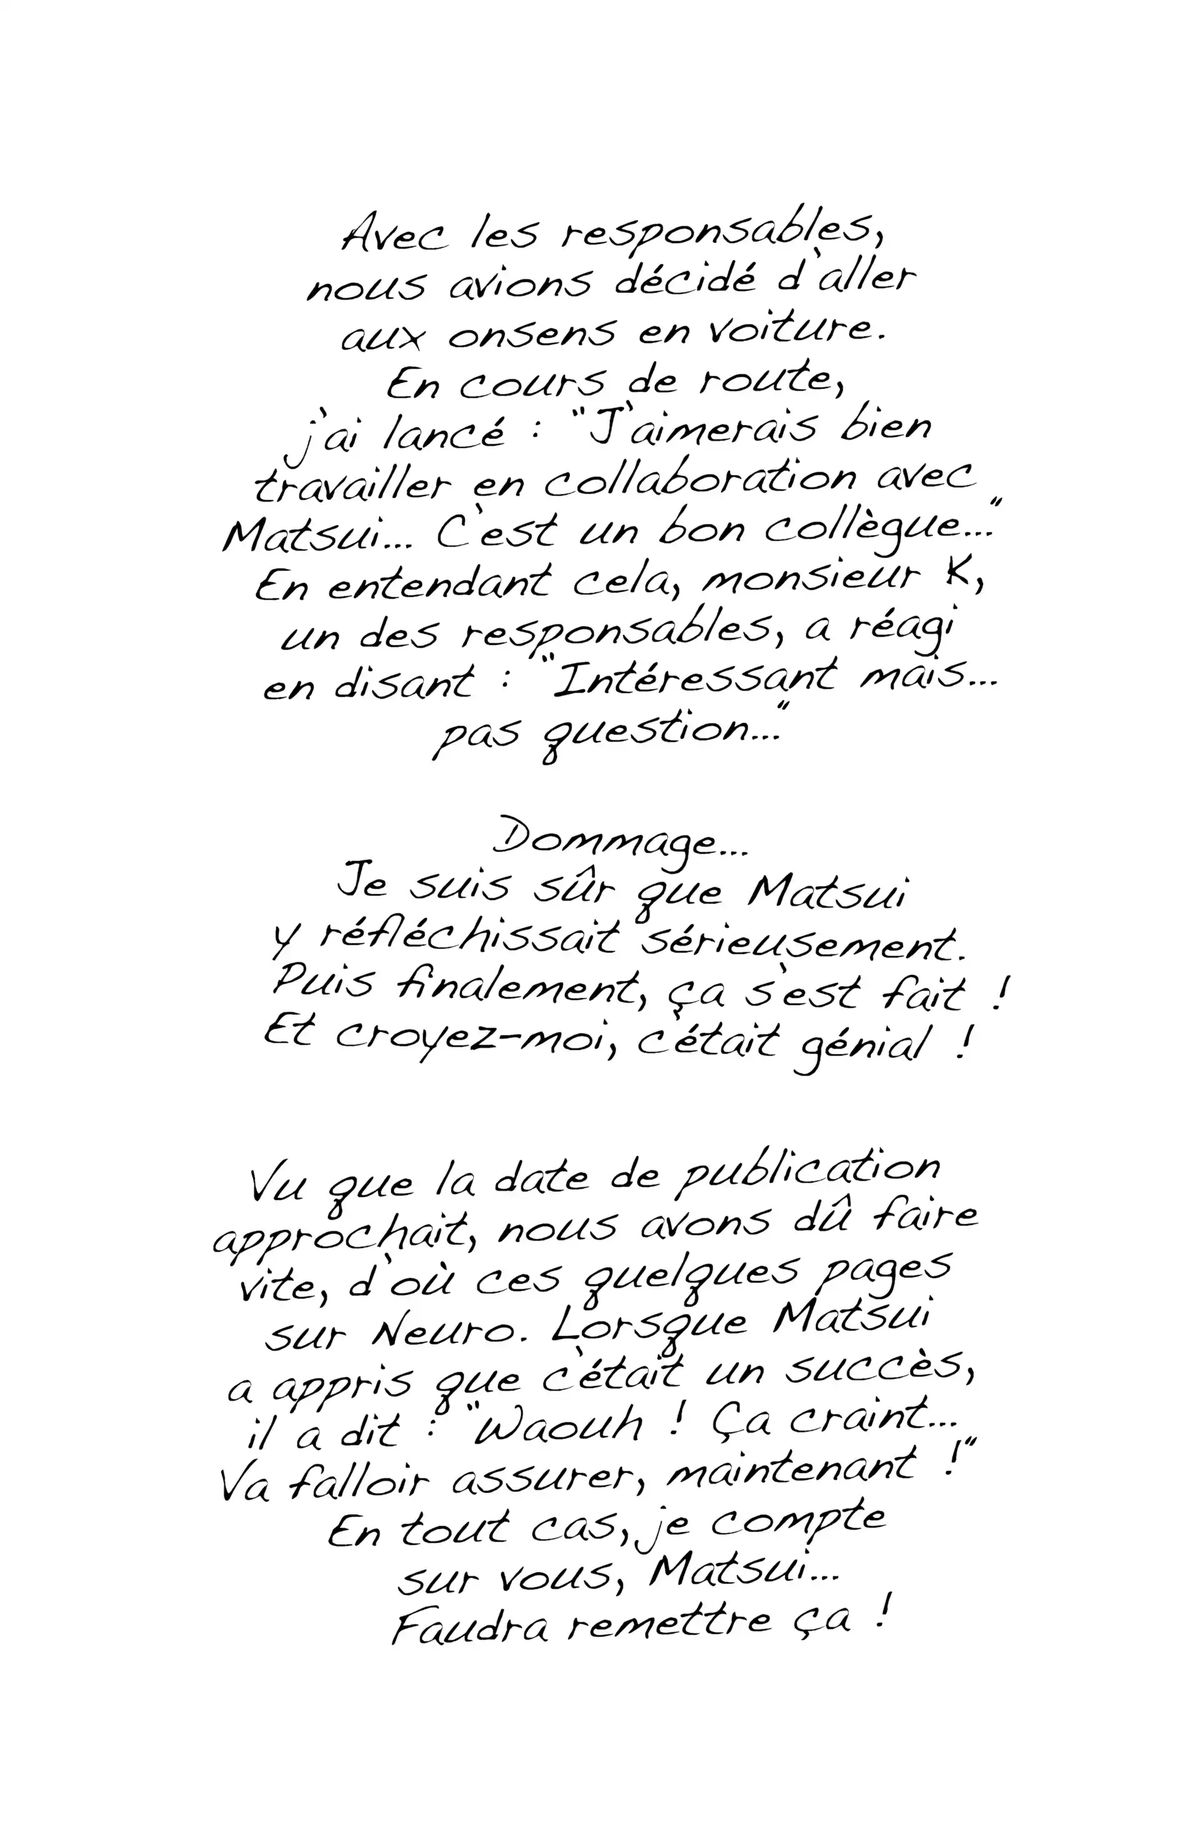 Avec les responsables,
nous avions décidé d'aller
aux onsens en voiture.
En cours de route,
j'ai lancé : "J'aimerais bien
travailler en collaboration avec
Matsui... C'est un bon collègue..."
En entendant cela, monsieur K,
un des responsables, a réagi
en disant : "Intéressant mais...
pas question..."
Dommage...
Je suis sûr que Matsui
y réfléchissait sérieusement.
Puis finalement, ça s'est fait !
Et croyez-moi, c'était génial !
Vu que la date de publication
approchait, nous avons dû faire
vite, d'où ces quelques pages
sur Neuro. Lorsque Matsui
a appris que c'était un succès,
il a dit : "Waouh ! Ça craint...
Va falloir assurer, maintenant !"
En tout cas, je compte
sur vous, Matsui...
Faudra remettre ça !